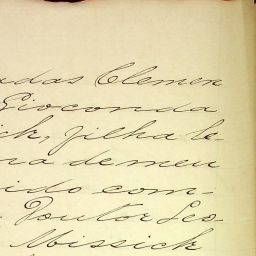 adas Clemen
Gioconda
ick, filha le-
ra de meu
ido com-
Doutor Leo
Missick